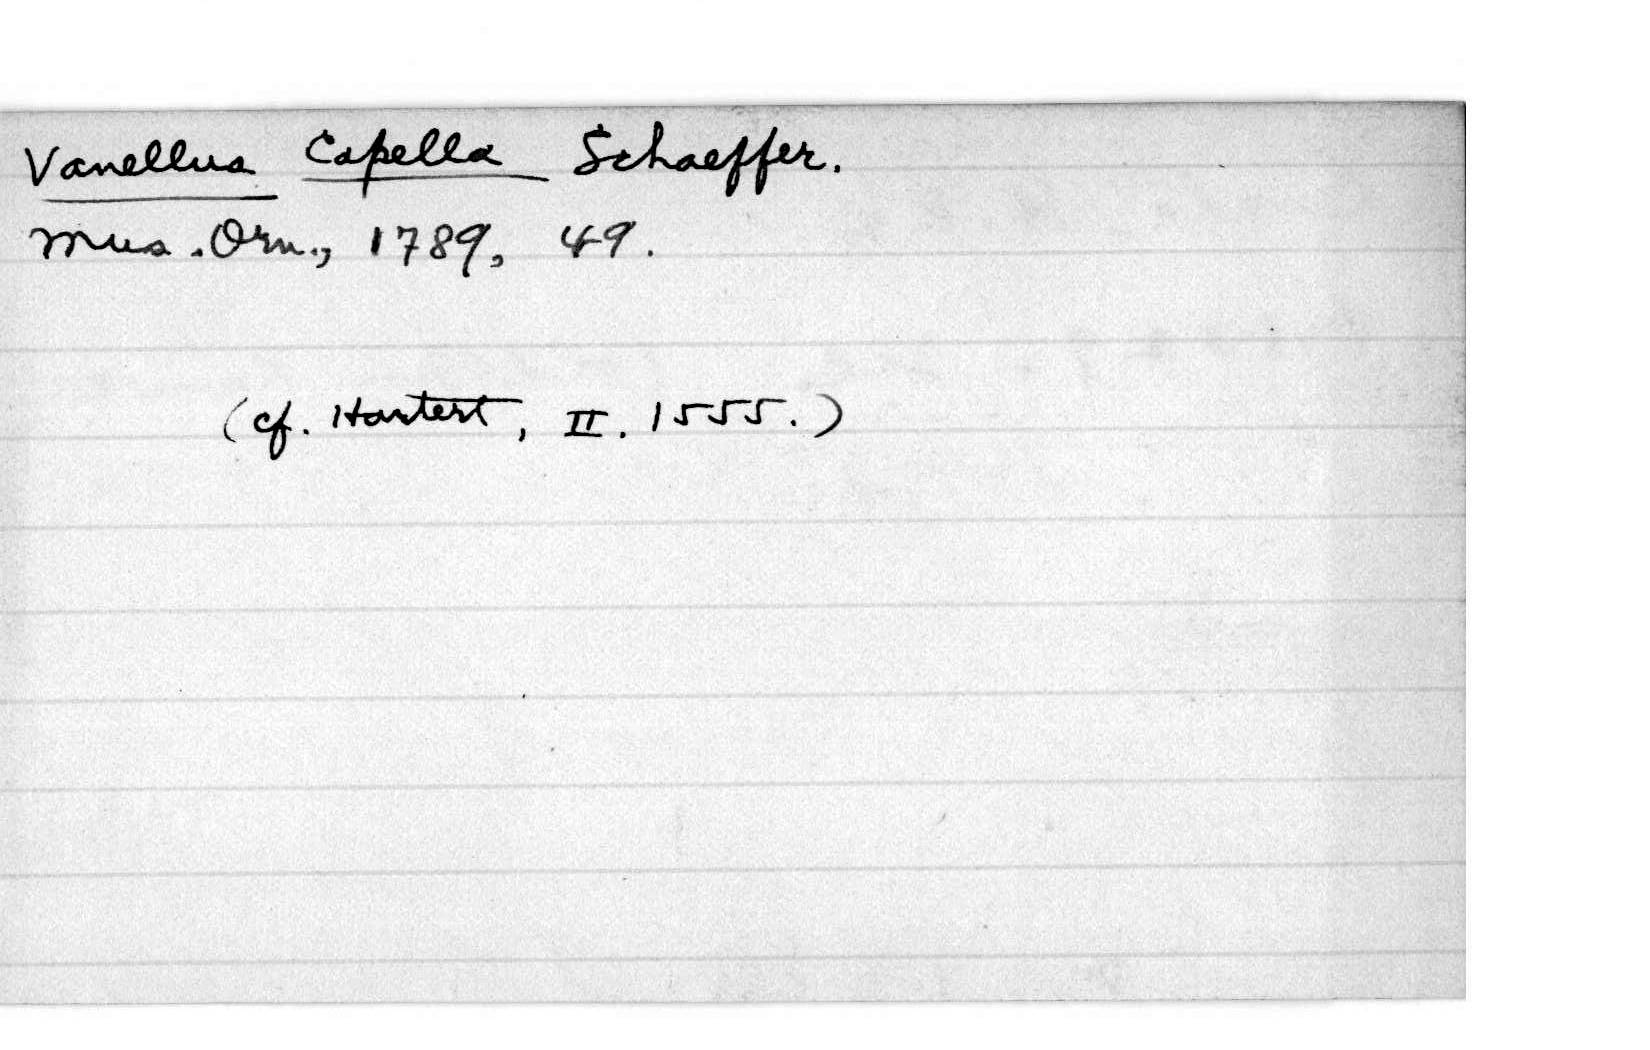 Vanellus Capella Schaeffer.
Mus. Orn., 1789, 49.
(cf. Hartert, II. 1555.)